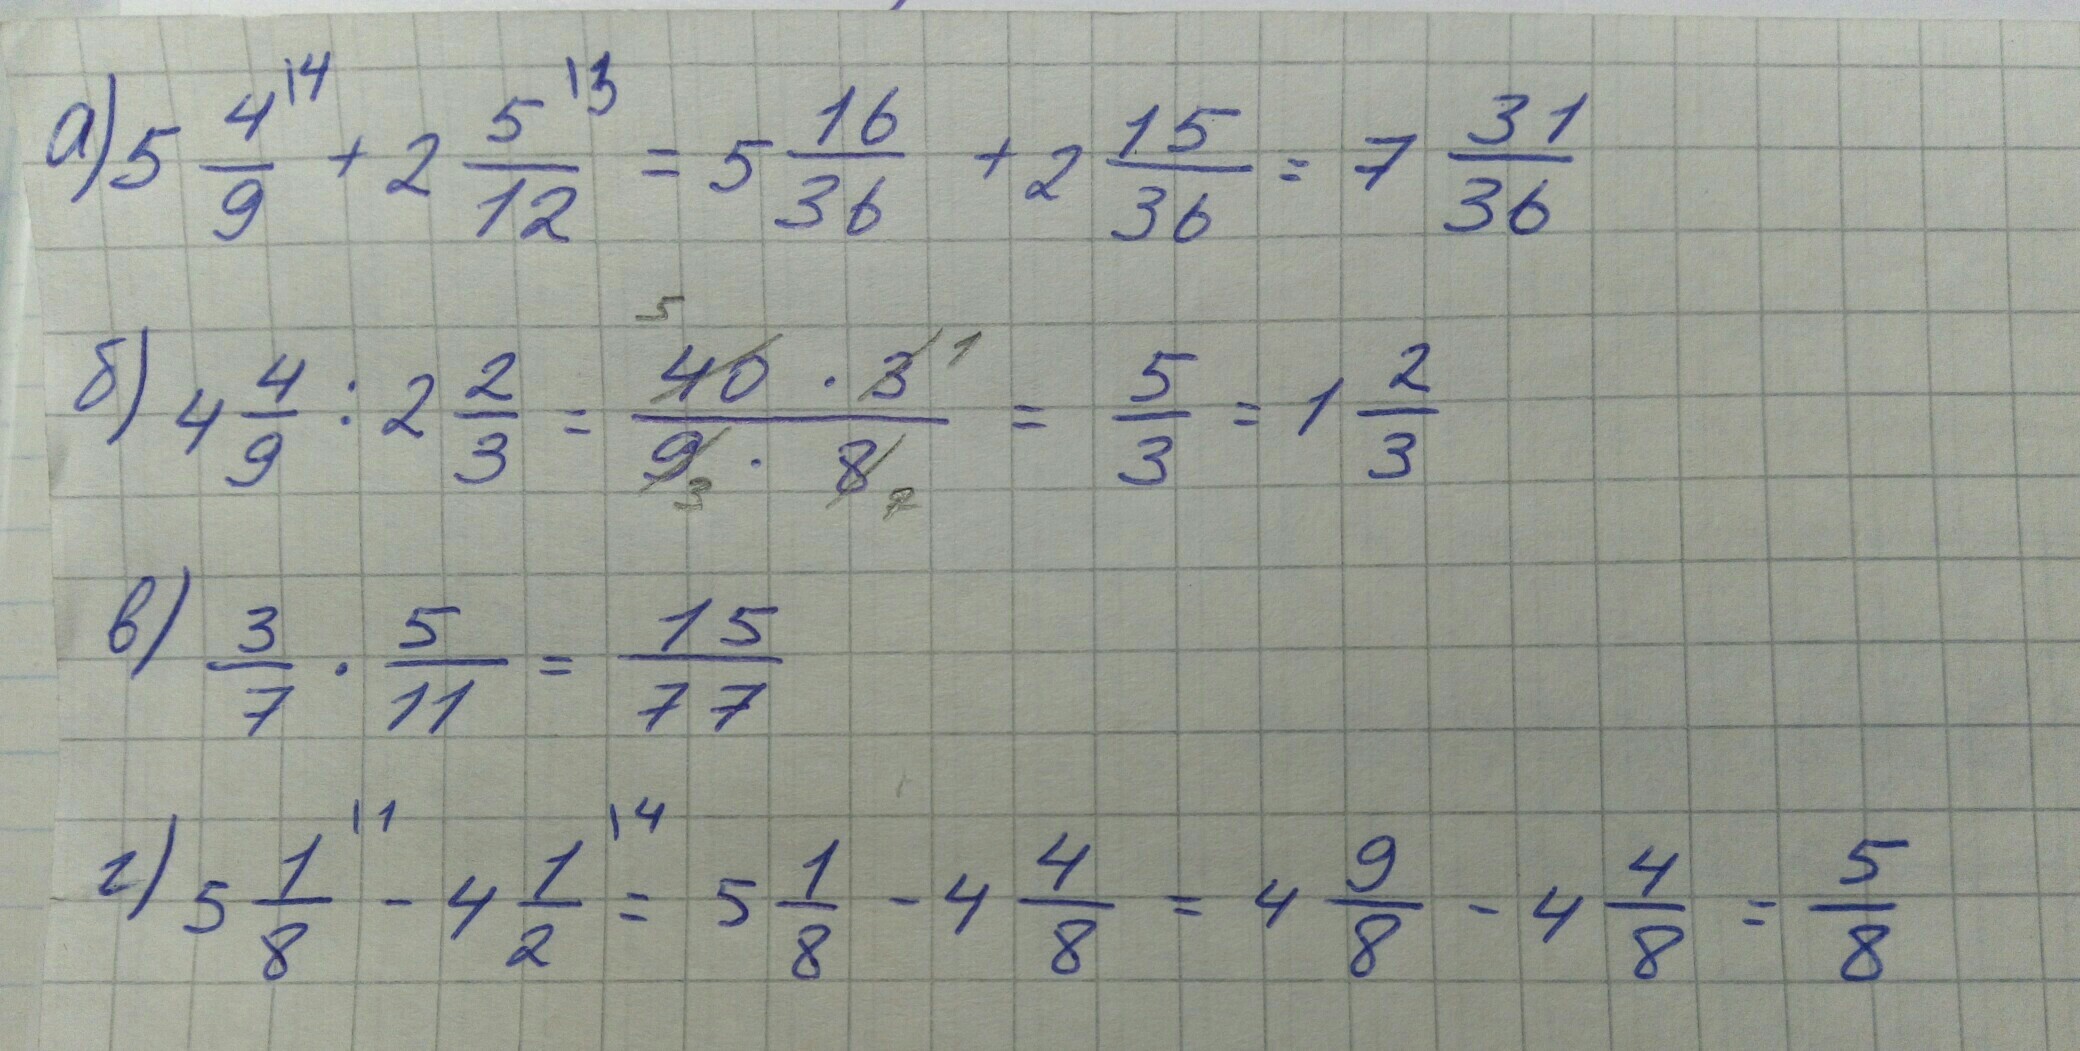 а) 5 4/9 \4 + 2 5/12 \3 = 5 16/36 + 2 15/36 = 7 31/36
б) 4 4/9 : 2 2/3 = 40 · 3 / 9 · 8 = 5/3 = 1 2/3
в) 3/7 · 5/11 = 15/77
г) 5 1/8 \1 - 4 1/2 \4 = 5 1/8 - 4 4/8 = 4 9/8 - 4 4/8 = 5/8